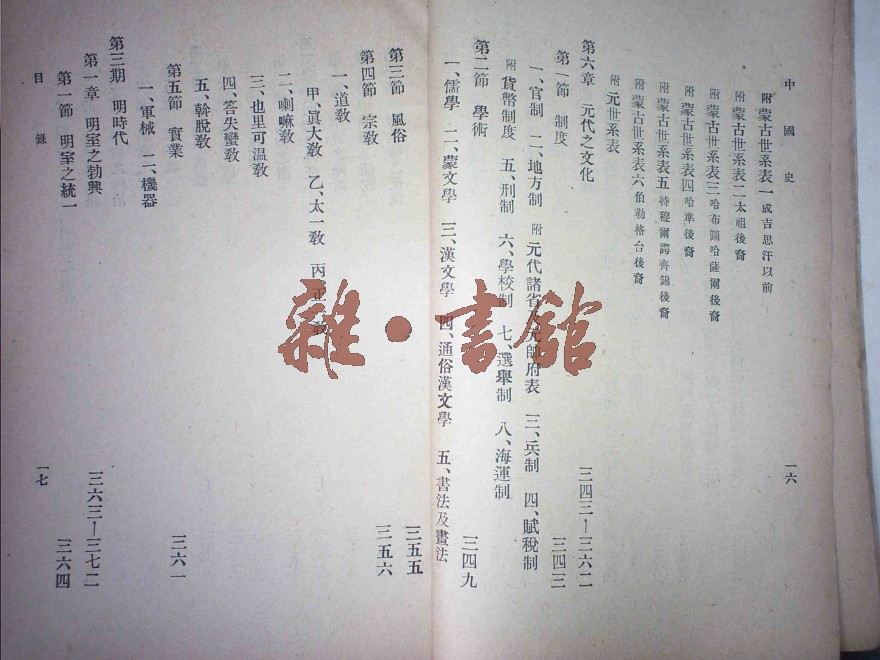 中國史
一六
附 蒙古世系表一 成吉思汗以前
附 蒙古世系表二 太祖後裔
附 蒙古世系表三 哈布圖哈薩爾後裔
附 蒙古世系表四 哈準後裔
附 蒙古世系表五 特穆爾諤齊錦後裔
附 蒙古世系表六 伯勒格台後裔
附 元世系表
第六章 元代之文化 三四三—三六二
第一節 制度 三四三
一、官制 二、地方制 附 元代諸省及元帥府表 三、兵制 四、賦稅制
附 貨幣制度 五、刑制 六、學校制 七、選舉制 八、海運制
第二節 學術 三四九
一、儒學 二、蒙文學 三、漢文學 四、通俗漢文學 五、書法及畫法
第三節 風俗 三五五
第四節 宗教 三五六
一、道教
甲、眞大教 乙、太一教 丙、正一教
二、喇嘛教
三、也里可温教
四、答失蠻教
五、斡脫教
第五節 實業 三六一
一、軍械 二、機器
第三期 明時代
第一章 明室之勃興 三六三—三七二
第一節 明室之統一 三六四
目錄
一七
雜·書館